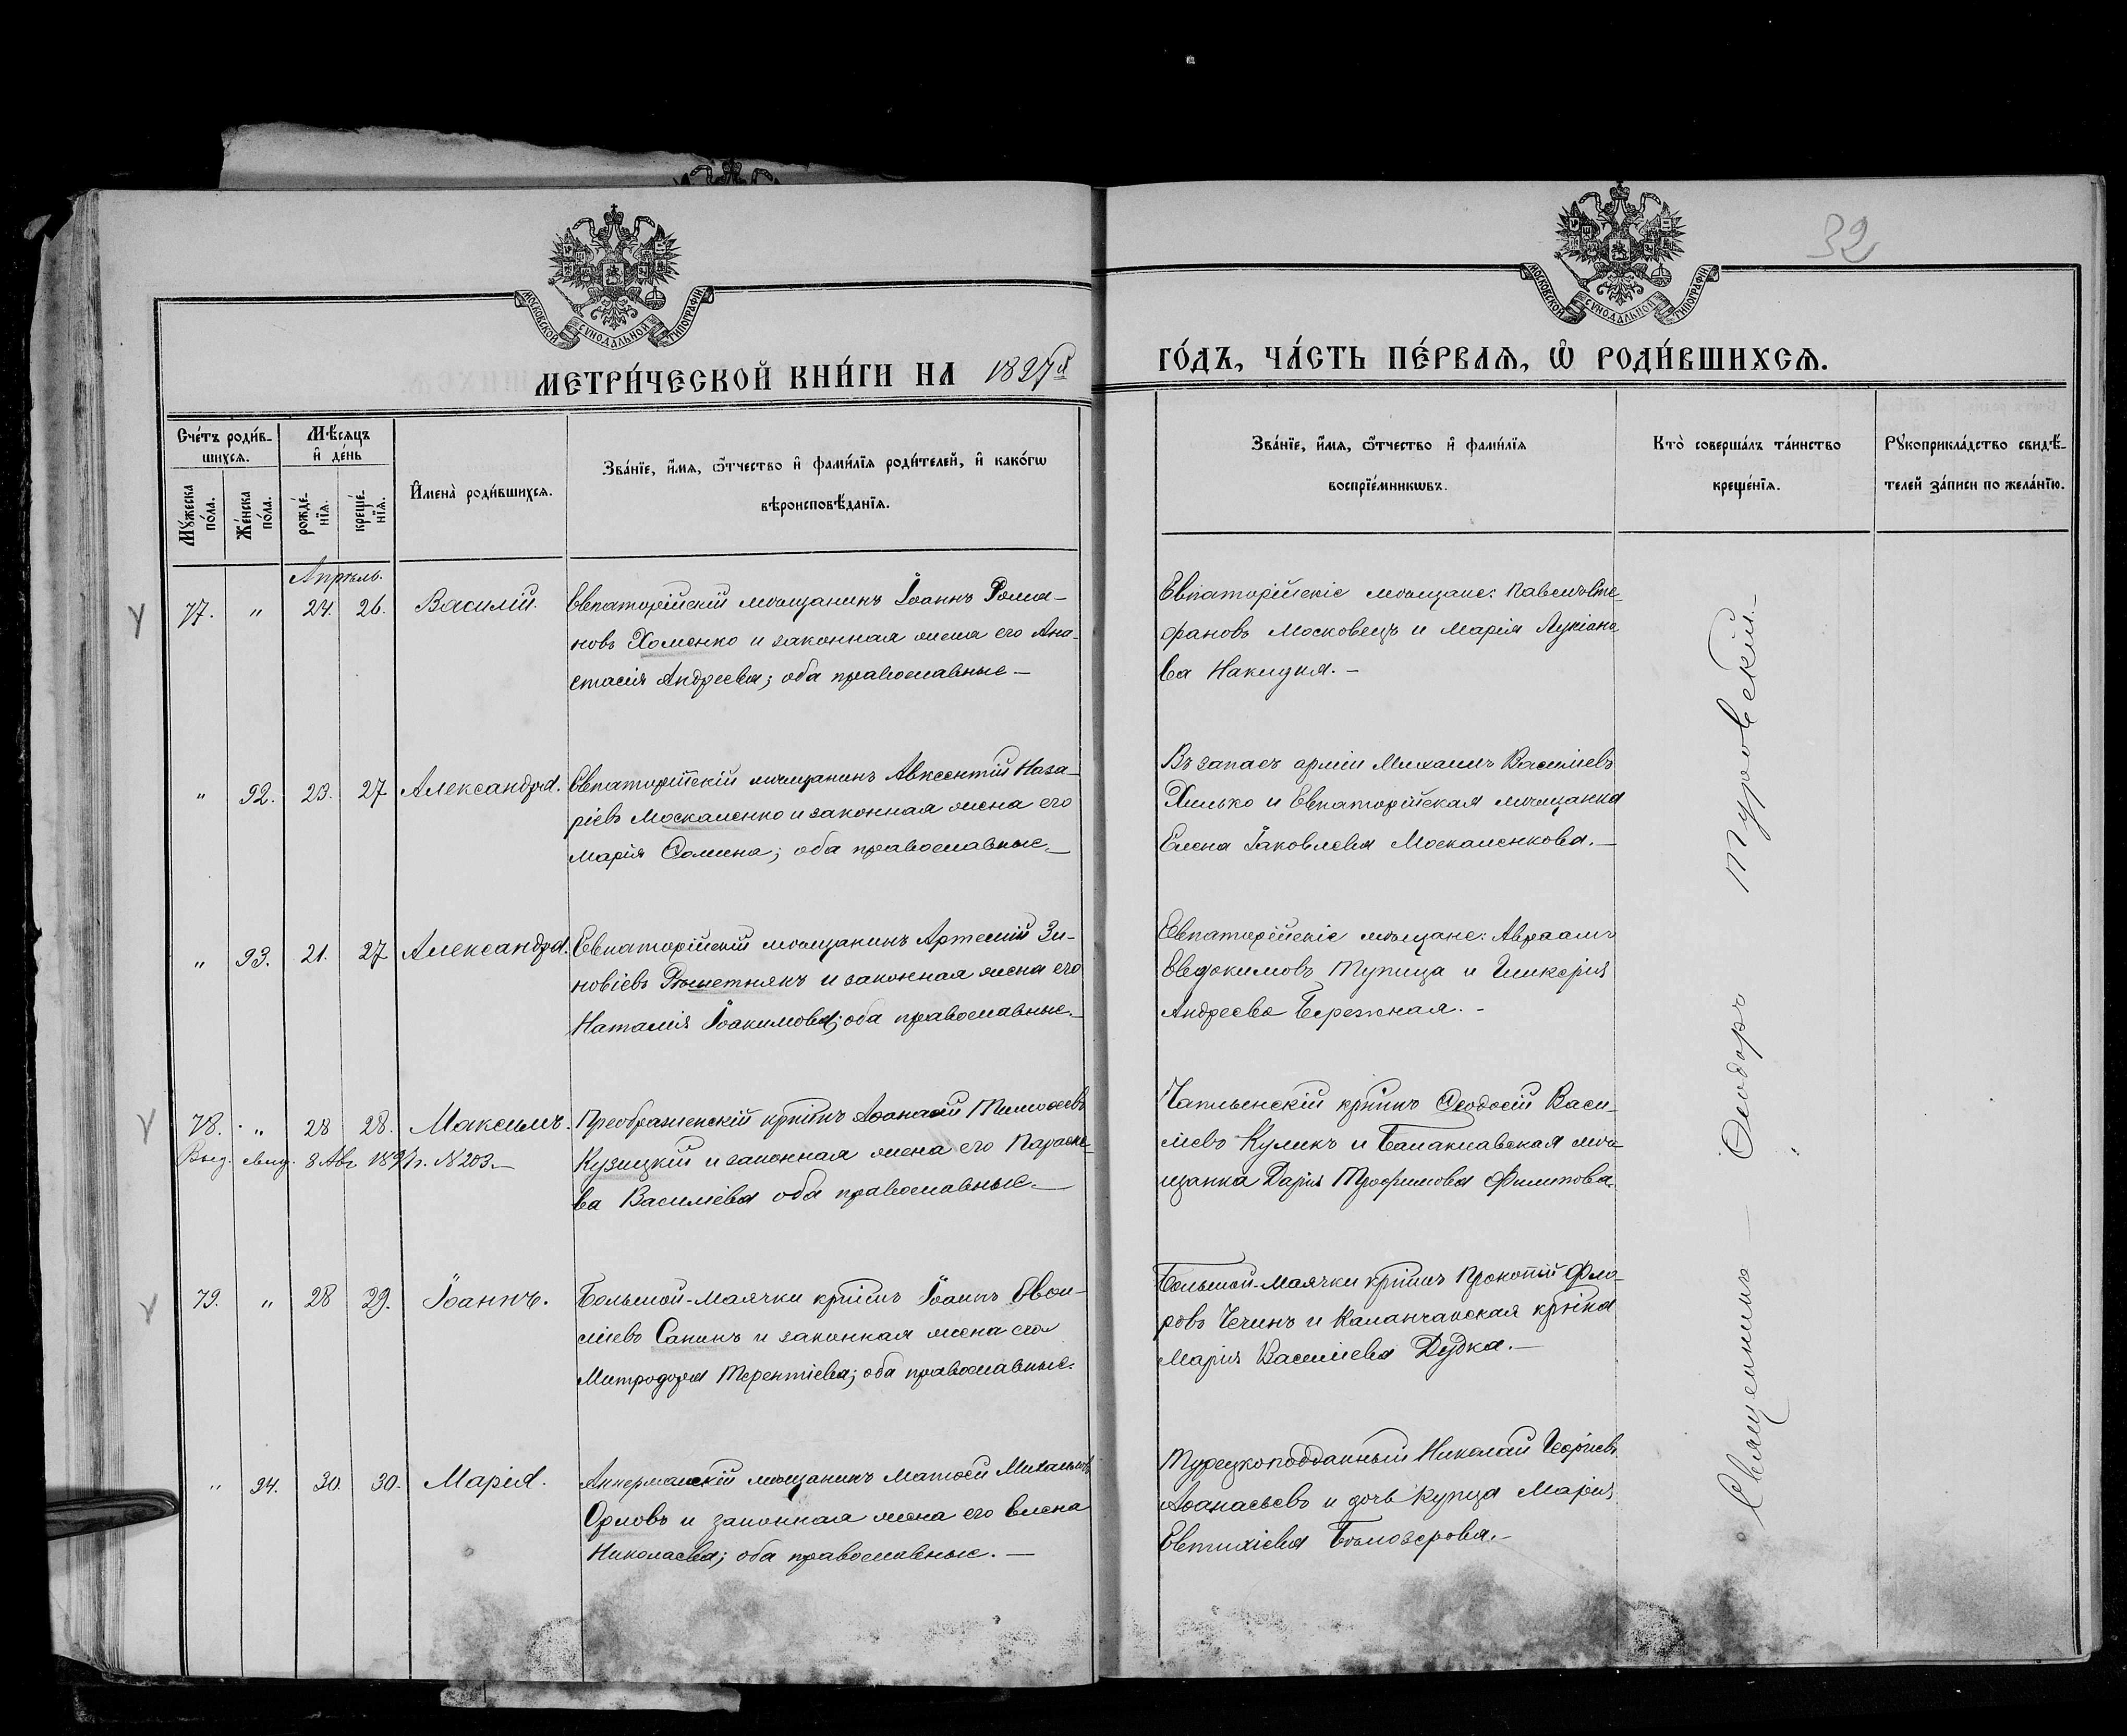 32
МОСКОВСКОЙ СѴНОДАЛЬНОЙ ТИПОГРАФІИ
МОСКОВСКОЙ СѴНОДАЛЬНОЙ ТИПОГРАФІИ
МЕТРИ́ЧЕСКОЙ КНИ́ГИ НА 1897й ГО́ДЪ, ЧА́СТЬ ПЕ́РВАЯ, Ѡ РОДИ́ВШИХСЯ.
Сче́тъ роди́в-
шихся.
Му́жеска по́ла.
Же́нска по́ла.
Мѣ́сяцъ
и҆ де́нь
рожде́-
нїя.
креще́-
нїя.
И҆мена̀ роди́вшихся.
Зва́нїе, и҆́мя, ѻ҆́тчество и҆ фами́лїя роди́телей, и҆ како́гѡ
вѣроисповѣ́данїя.
Зва́нїе, и҆́мя, ѻ҆́тчество и҆ фами́лїя
воспрїе́мникѡвъ.
Кто̀ соверша́лъ та́инство
креще́нїя.
Рꙋкоприкла́дство свидѣ́-
телей за́писи по жела́нїю.
Апрѣль.
77. " 24. 26. Василій.
Евпаторійскій мѣщанинъ Іоаннъ Рома-
новъ Хоменко и законная жена его Ана-
стасія Андреева; оба православные —
Евпаторійскіе мѣщане: Павелъ Сте-
фановъ Московецъ и Марія Лукіано-
ва Накидня. —
" 92. 23. 27 Александра.
Евпаторійскій мѣщанинъ Авксентій Наза-
ріевъ Москаленко и законная жена его
Марія Ѳомина; оба православные. —
Въ запасъ арміи Михаилъ Василіевъ
Хилько и Евпаторійская мѣщанка
Елена Іаковлева Москаленкова. —
" 93. 21. 27 Александра.
Евпаторійскій мѣщанинъ Артемій Зи-
новіевъ Рѣшетнякъ и законная жена его
Наталія Іоакимова; оба православные. —
Евпаторійскіе мѣщане: Авраамъ
Евдокимовъ Тупица и Гликерія
Андреева Бережная. —
78. " 28 28. Максимъ.
Выд. свид. 8 Авг. 1897г. N 203. —
Преображенскій кр-инъ Аѳанасій Тимоѳеевъ
Кузицкій и законная жена его Параске-
ва Василіева оба православные. —
Чаплынскій кр-инъ Ѳеодосій Васи-
ліевъ Куликъ и Балаклавская мѣ-
щанка Дарія Трофимова Филипова.
79. " 28 29. Іоаннъ.
Большой-Маячки кр-инъ Іоаннъ
Санинъ и законная жена его
Митродора Терентіева; оба православные.
Большой-Маячки кр-инъ Прокопій Фло-
ровъ Чечинъ и Каланчакская кр-нка
Марія Василіева Дудка. —
" 94. 30. 30. Марія.
Аккерманскій мѣщанинъ Матѳей Михаиловъ
Орловъ и законная жена его Елена
Николаева; оба православные. —
Турецкоподданный Николай Георгіевъ
Аѳанасьевъ и дочь купца Марія
Евтихіева Бѣлозерова. —
Священникъ — Ѳеодоръ Туровскій. —